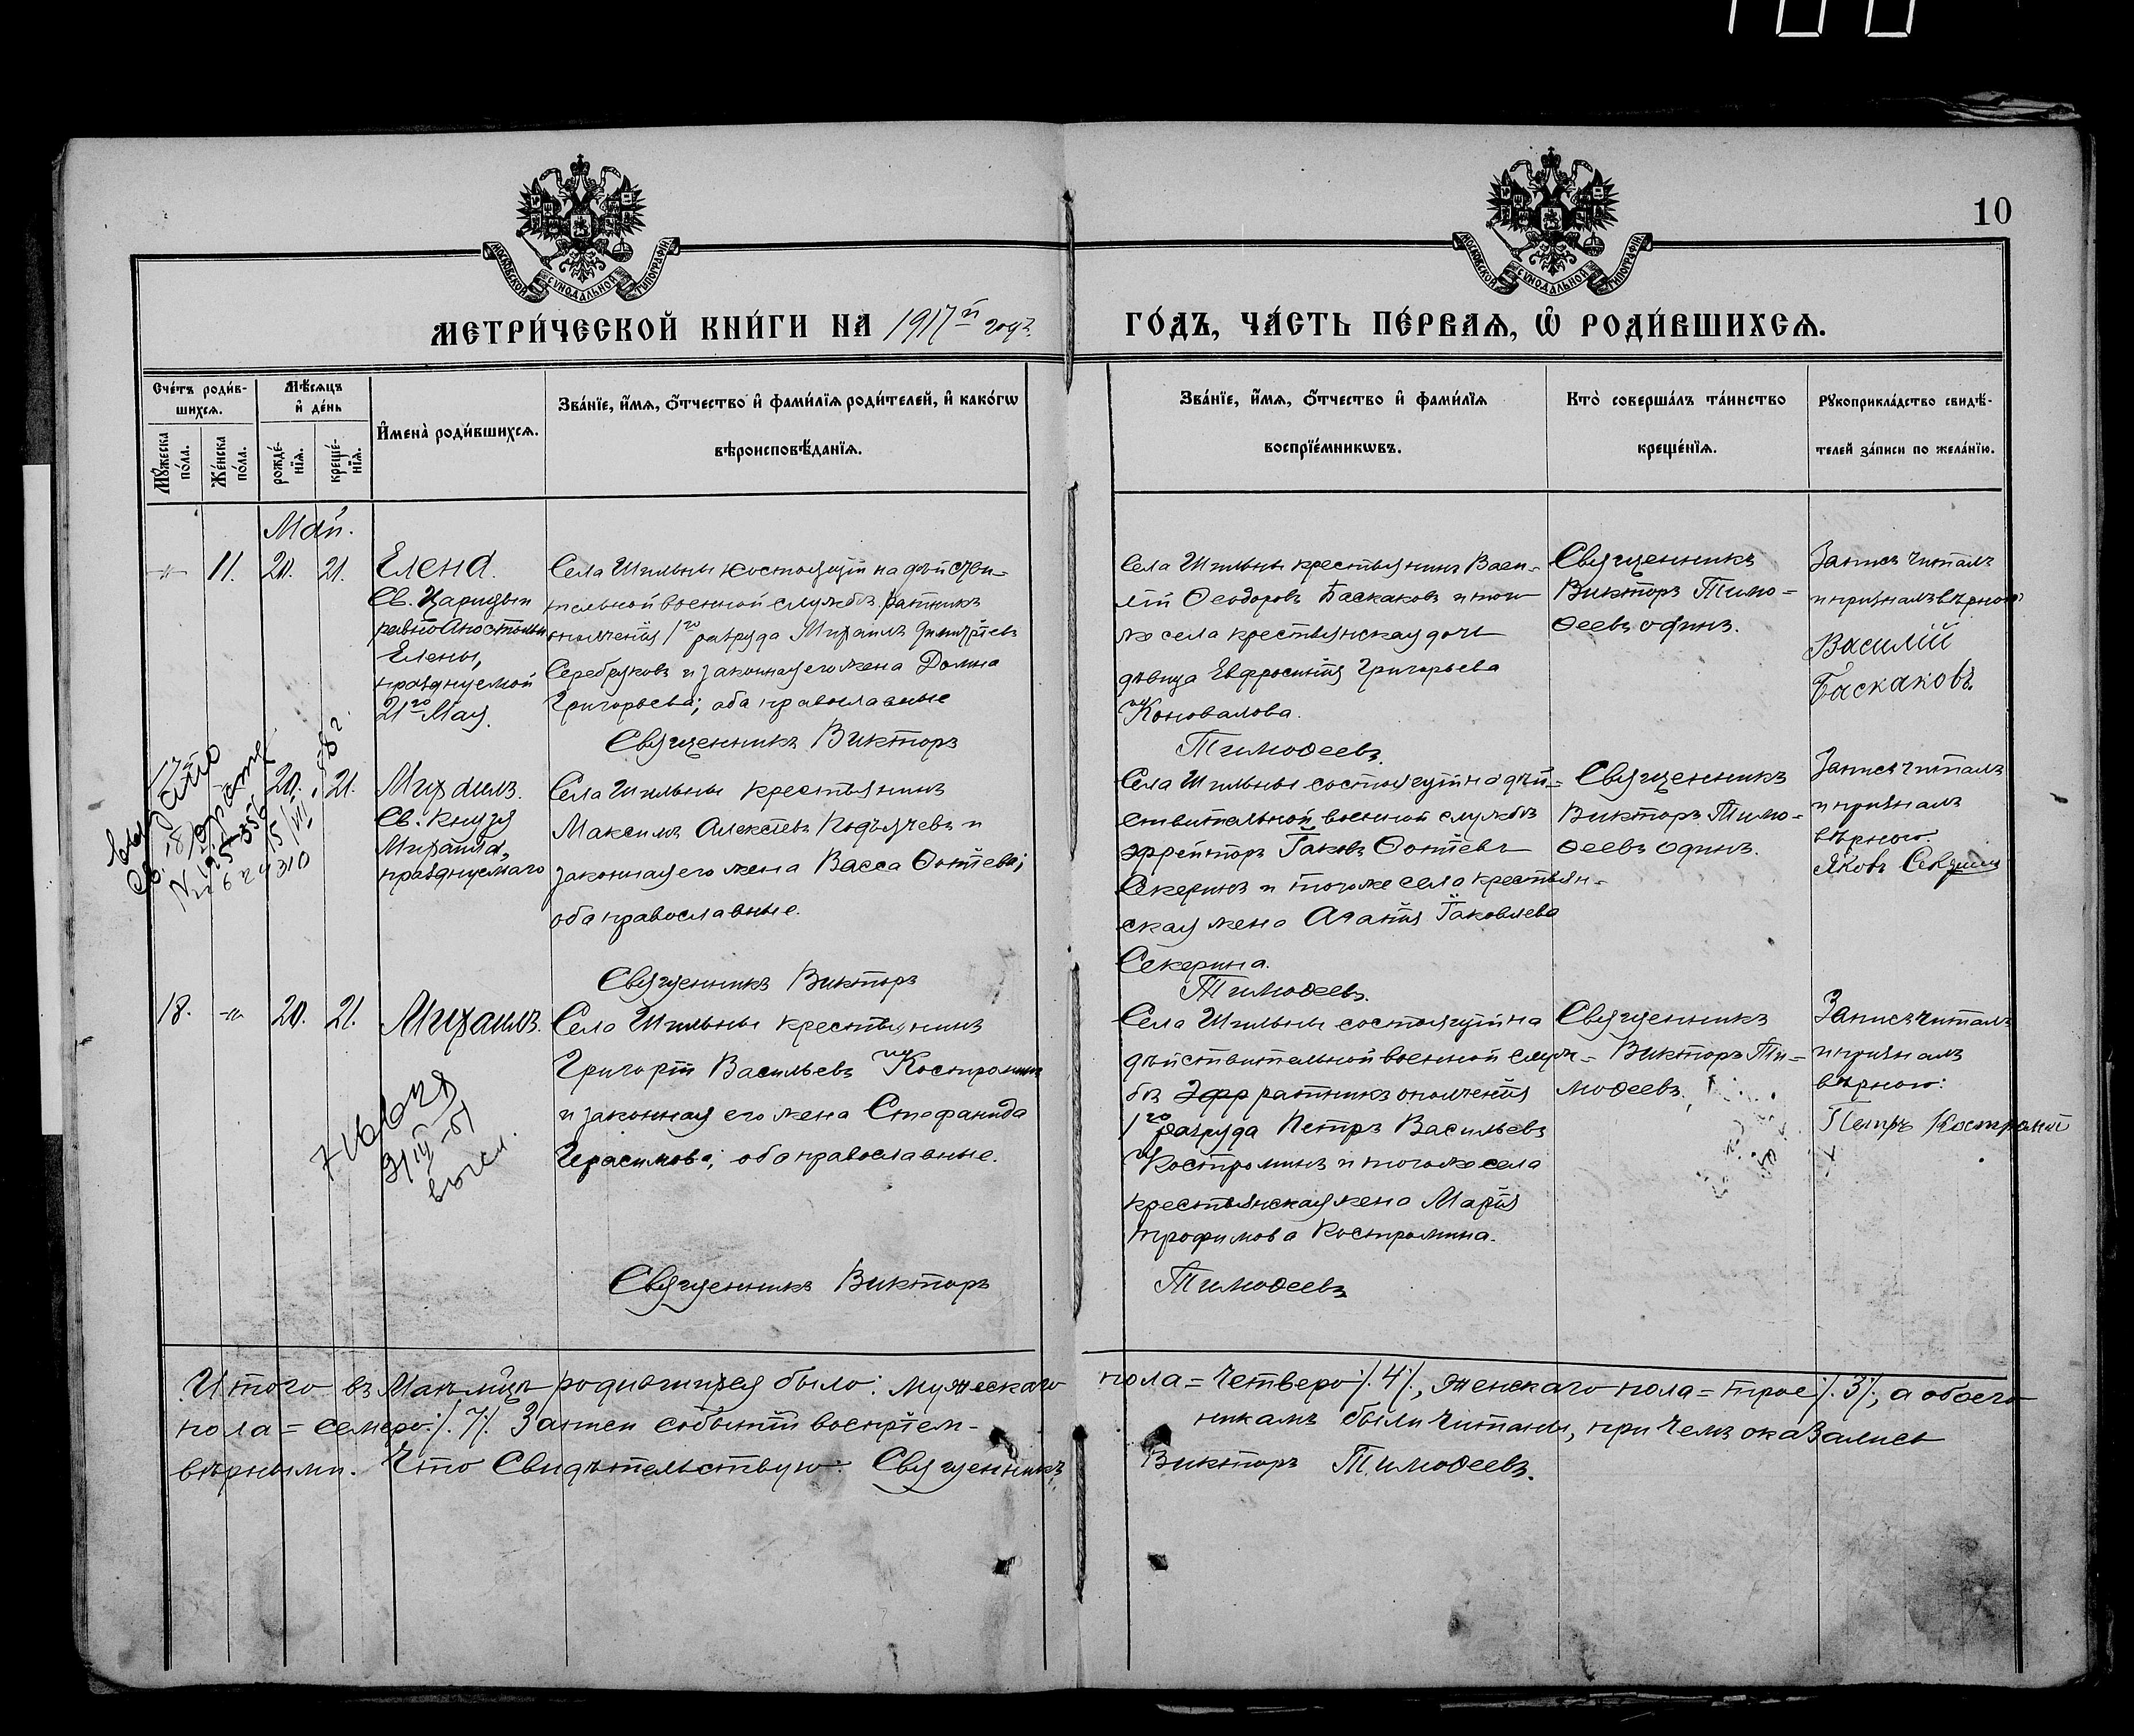 10
МОСКОВСКОЙ СУНОДАЛЬНОЙ ТИПОГРАФІИ
МОСКОВСКОЙ СУНОДАЛЬНОЙ ТИПОГРАФІИ
МЕТРИ́ЧЕСКОЙ КНИ́ГИ НА 1917й годъ
ГО́ДЪ, ЧА́СТЬ ПЕ́РВАѦ, Ѽ РОДИ́ВШИХСѦ.
Сче́тъ роди́в-
шихсѧ.
Мѣ́сѧцъ
и҆ де́нь
Мꙋ́жеска по́ла.
Же́нска по́ла.
рожде́-
нїѧ.
креще́-
нїѧ.
И҆мена̀ роди́вшихсѧ.
Зва́нїе, и҆́мѧ, ѻ҆́тчество и҆ фами́лїѧ роди́телей, и҆ како́гѡ
вѣроисповѣ́данїѧ.
Зва́нїе, и҆́мѧ, ѻ҆́тчество и҆ фами́лїѧ
воспрїе́мникѡвъ.
Кто̀ соверша́лъ та́инство
креще́нїѧ.
Рꙋкоприкла́дство свидѣ́-
телей за́писи по жела́нїю.
Май.
11. 20. 21.
Елена.
Св. Царицы
равноАпостольн
Елены,
празднуемой
21го Мая.
Села Шильны состоящій на дѣйстви-
тельной военной службѣ ратникъ
ополченія 1го разряда Михаилъ Димитріевъ
Серебряковъ и законная его жена Домна
Григорьева; оба православные
Священникъ Викторъ
Села Шильны крестьянинъ Васи-
лій Ѳеодоровъ Баскаковъ и того
же села крестьянская дочь
дѣвица Евфросинія Григорьева
Коновалова.
Тимоѳеевъ.
Священникъ
Викторъ Тимо-
ѳеевъ одинъ.
Запись читалъ
и призналъ вѣрною
Василій
Баскаковъ.
17
20. 21.
Михаилъ.
Св. Князя
Михаила,
празднуемаго
Села Шильны крестьянинъ
Максимъ Алексѣевъ Подъячевъ и
законная его жена Васса Ѳотіева;
оба православные.
Священникъ Викторъ
Села Шильны состоящій на дѣй-
ствительной военной службѣ
эфрейторъ Іаковъ Ѳотіевъ
Секеринъ и того же села крестьян-
ская жена Агаѳія Іаковлева
Секерина.
Тимоѳеевъ.
Священникъ
Викторъ Тимо-
ѳеевъ одинъ.
Запись читалъ
и призналъ
вѣрною
Яковъ
18. 20. 21.
Михаилъ.
Села Шильны крестьянинъ
Григорій Васильевъ Костроминъ
и законная его жена Стефанида
Герасимова; оба православные.
Священникъ Викторъ
Села Шильны состоящій на
дѣйствительной военной служ-
бѣ Эфр ратникъ ополченія
1го разряда Петръ Васильевъ
Костроминъ и того же села
крестьянская жена Марія
Трофимова Костромина.
Тимоѳеевъ
Священникъ
Викторъ Ти-
моѳеевъ.
Запись читалъ
и призналъ
вѣрною:
Петръ Костромин
Итого въ Маѣ мѣцѣ родившихся было: мужескаго пола = четверо ⁒ 4 ⁒, женскаго пола = трое ⁒ 3 ⁒, а обоего
пола = семеро ⁒ 7 ⁒. Записи событій воспріем-
никамъ были читаны, при чемъ оказались
вѣрными. Что Свидѣтельствую: Священникъ Викторъ Тимоѳеевъ.